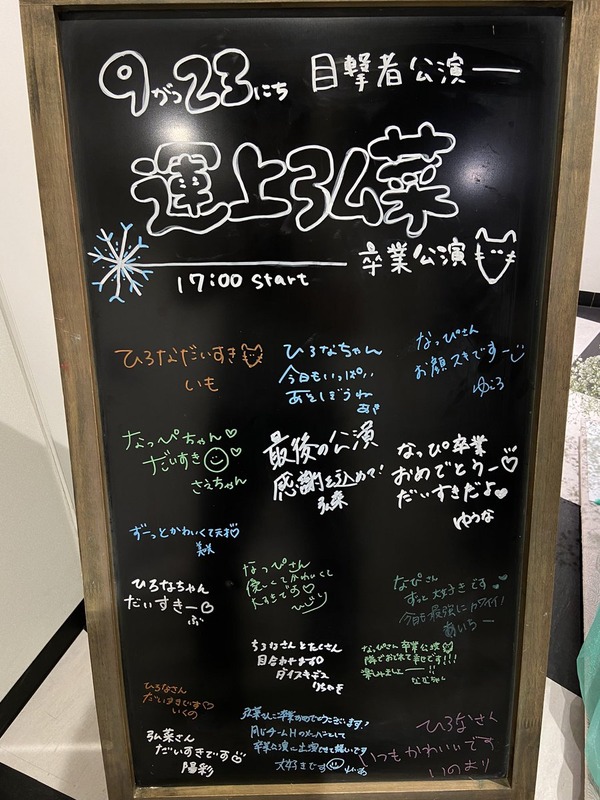 9がつ23にち 目撃者公演
運上弘菜
卒業公演
17:00 start
ひろなだいすき
いも
ひろなちゃん
今日もいっぱい
あそぼうね
なっぴさん
お顔スキですー
ゆころ
なっぴちゃん♡
だいすき
さえちゃん
最後の公演
感謝を込めて!
弘菜
なっぴ卒業
おめでとうー♡
だいすきだよ♥
ゆうな
ずーっとかわいくて天才♡
ひろなちゃん
だいすきー♡
ぶ
なっぴさん
優しくてかわいくて
大好きです♡
なぴさん
ずっと大好きです
今日も最強にカワイイ!
あいちー
ひろなさんとたくさん
目合わせます
ダイスキデス
なっぴさん卒業公演
隣でおどれて幸せです!!!
楽しみましょー!!
ひろなさん
だいすきです♡
いくの
弘菜さん
だいすきです
陽彩
弘菜さんご卒業おめでとうございます!
同じチームHのメンバーとして
卒業公演に出演できて嬉しいです
大好きです
ひろなさん
いつもかわいいです
いのおり